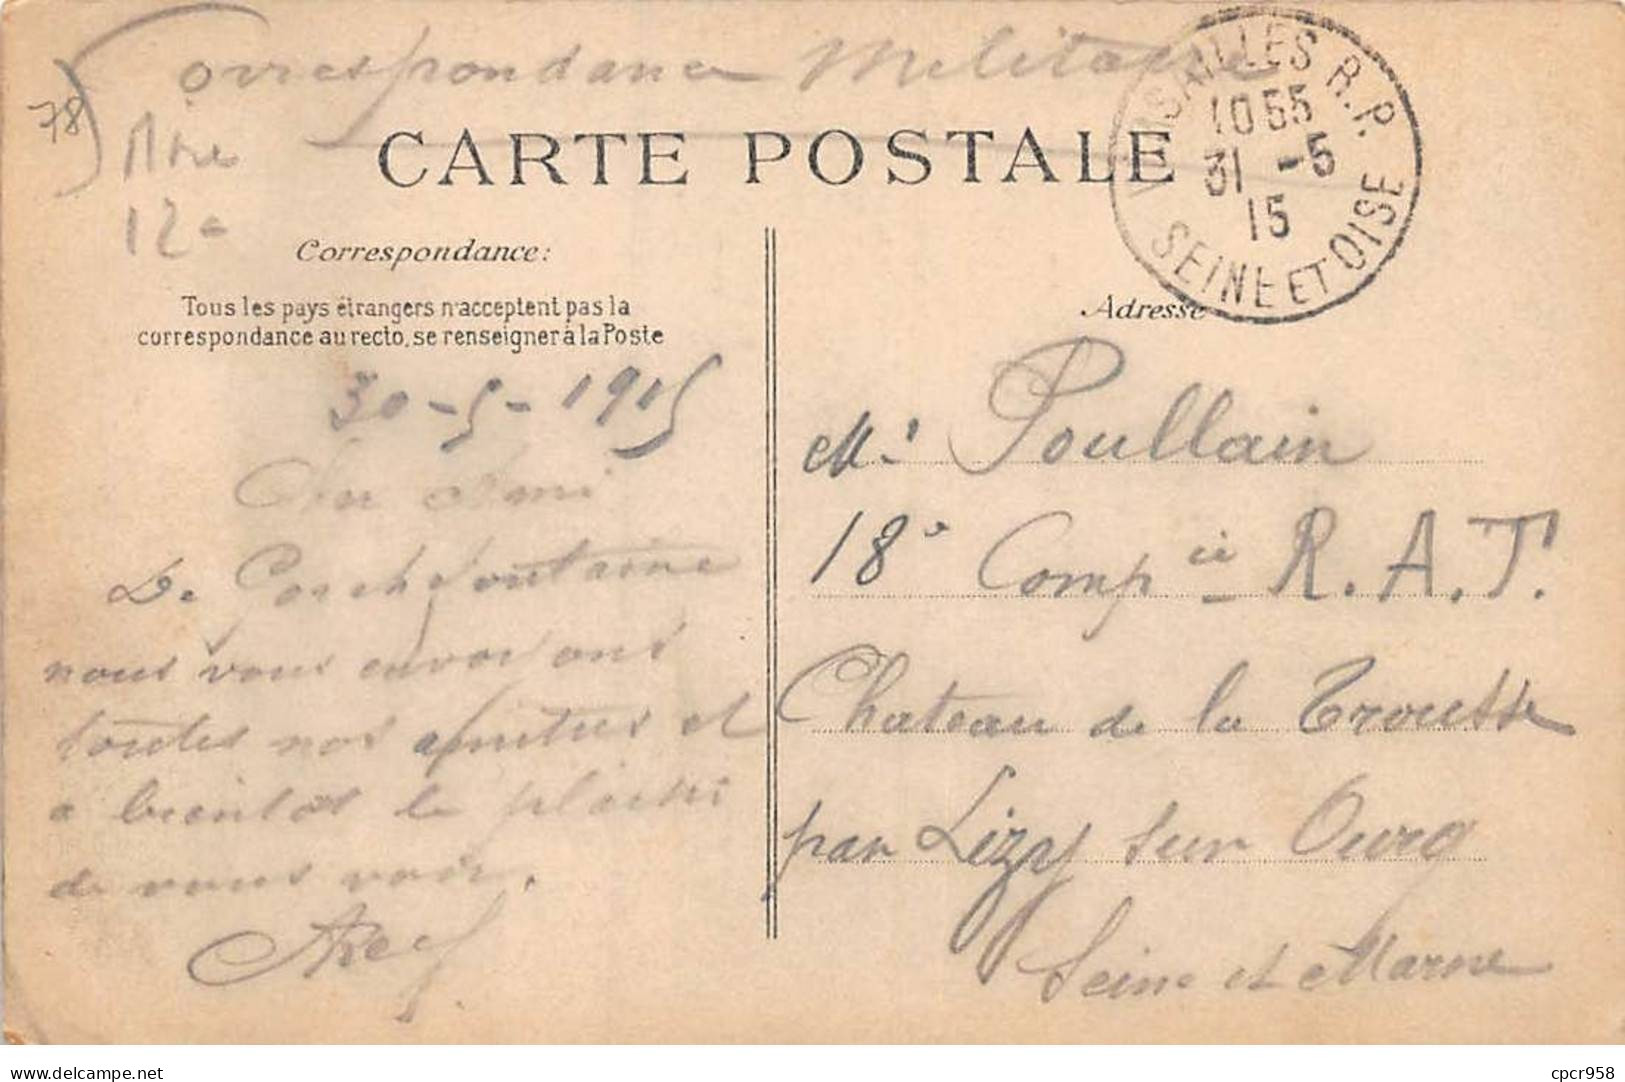 Correspondance Militaire
78
12e
CARTE POSTALE
VERSAILLES R.P.
10 55
31 -5
15
SEINE ET OISE
Correspondance:
Tous les pays étrangers n'acceptent pas la
correspondance au recto, se renseigner à la Poste
Adresse
30-5-1915
Cher Ami
De Porchefontaine
nous vous envoyons
toutes nos amitiés et
a bientôt le plaisir
de vous voir.
Mr Poullain
18e Compie R.A.T.
Chateau de la Trousse
par Lizy sur Ourq
Seine et Marne
delcampe.net
cpcr958